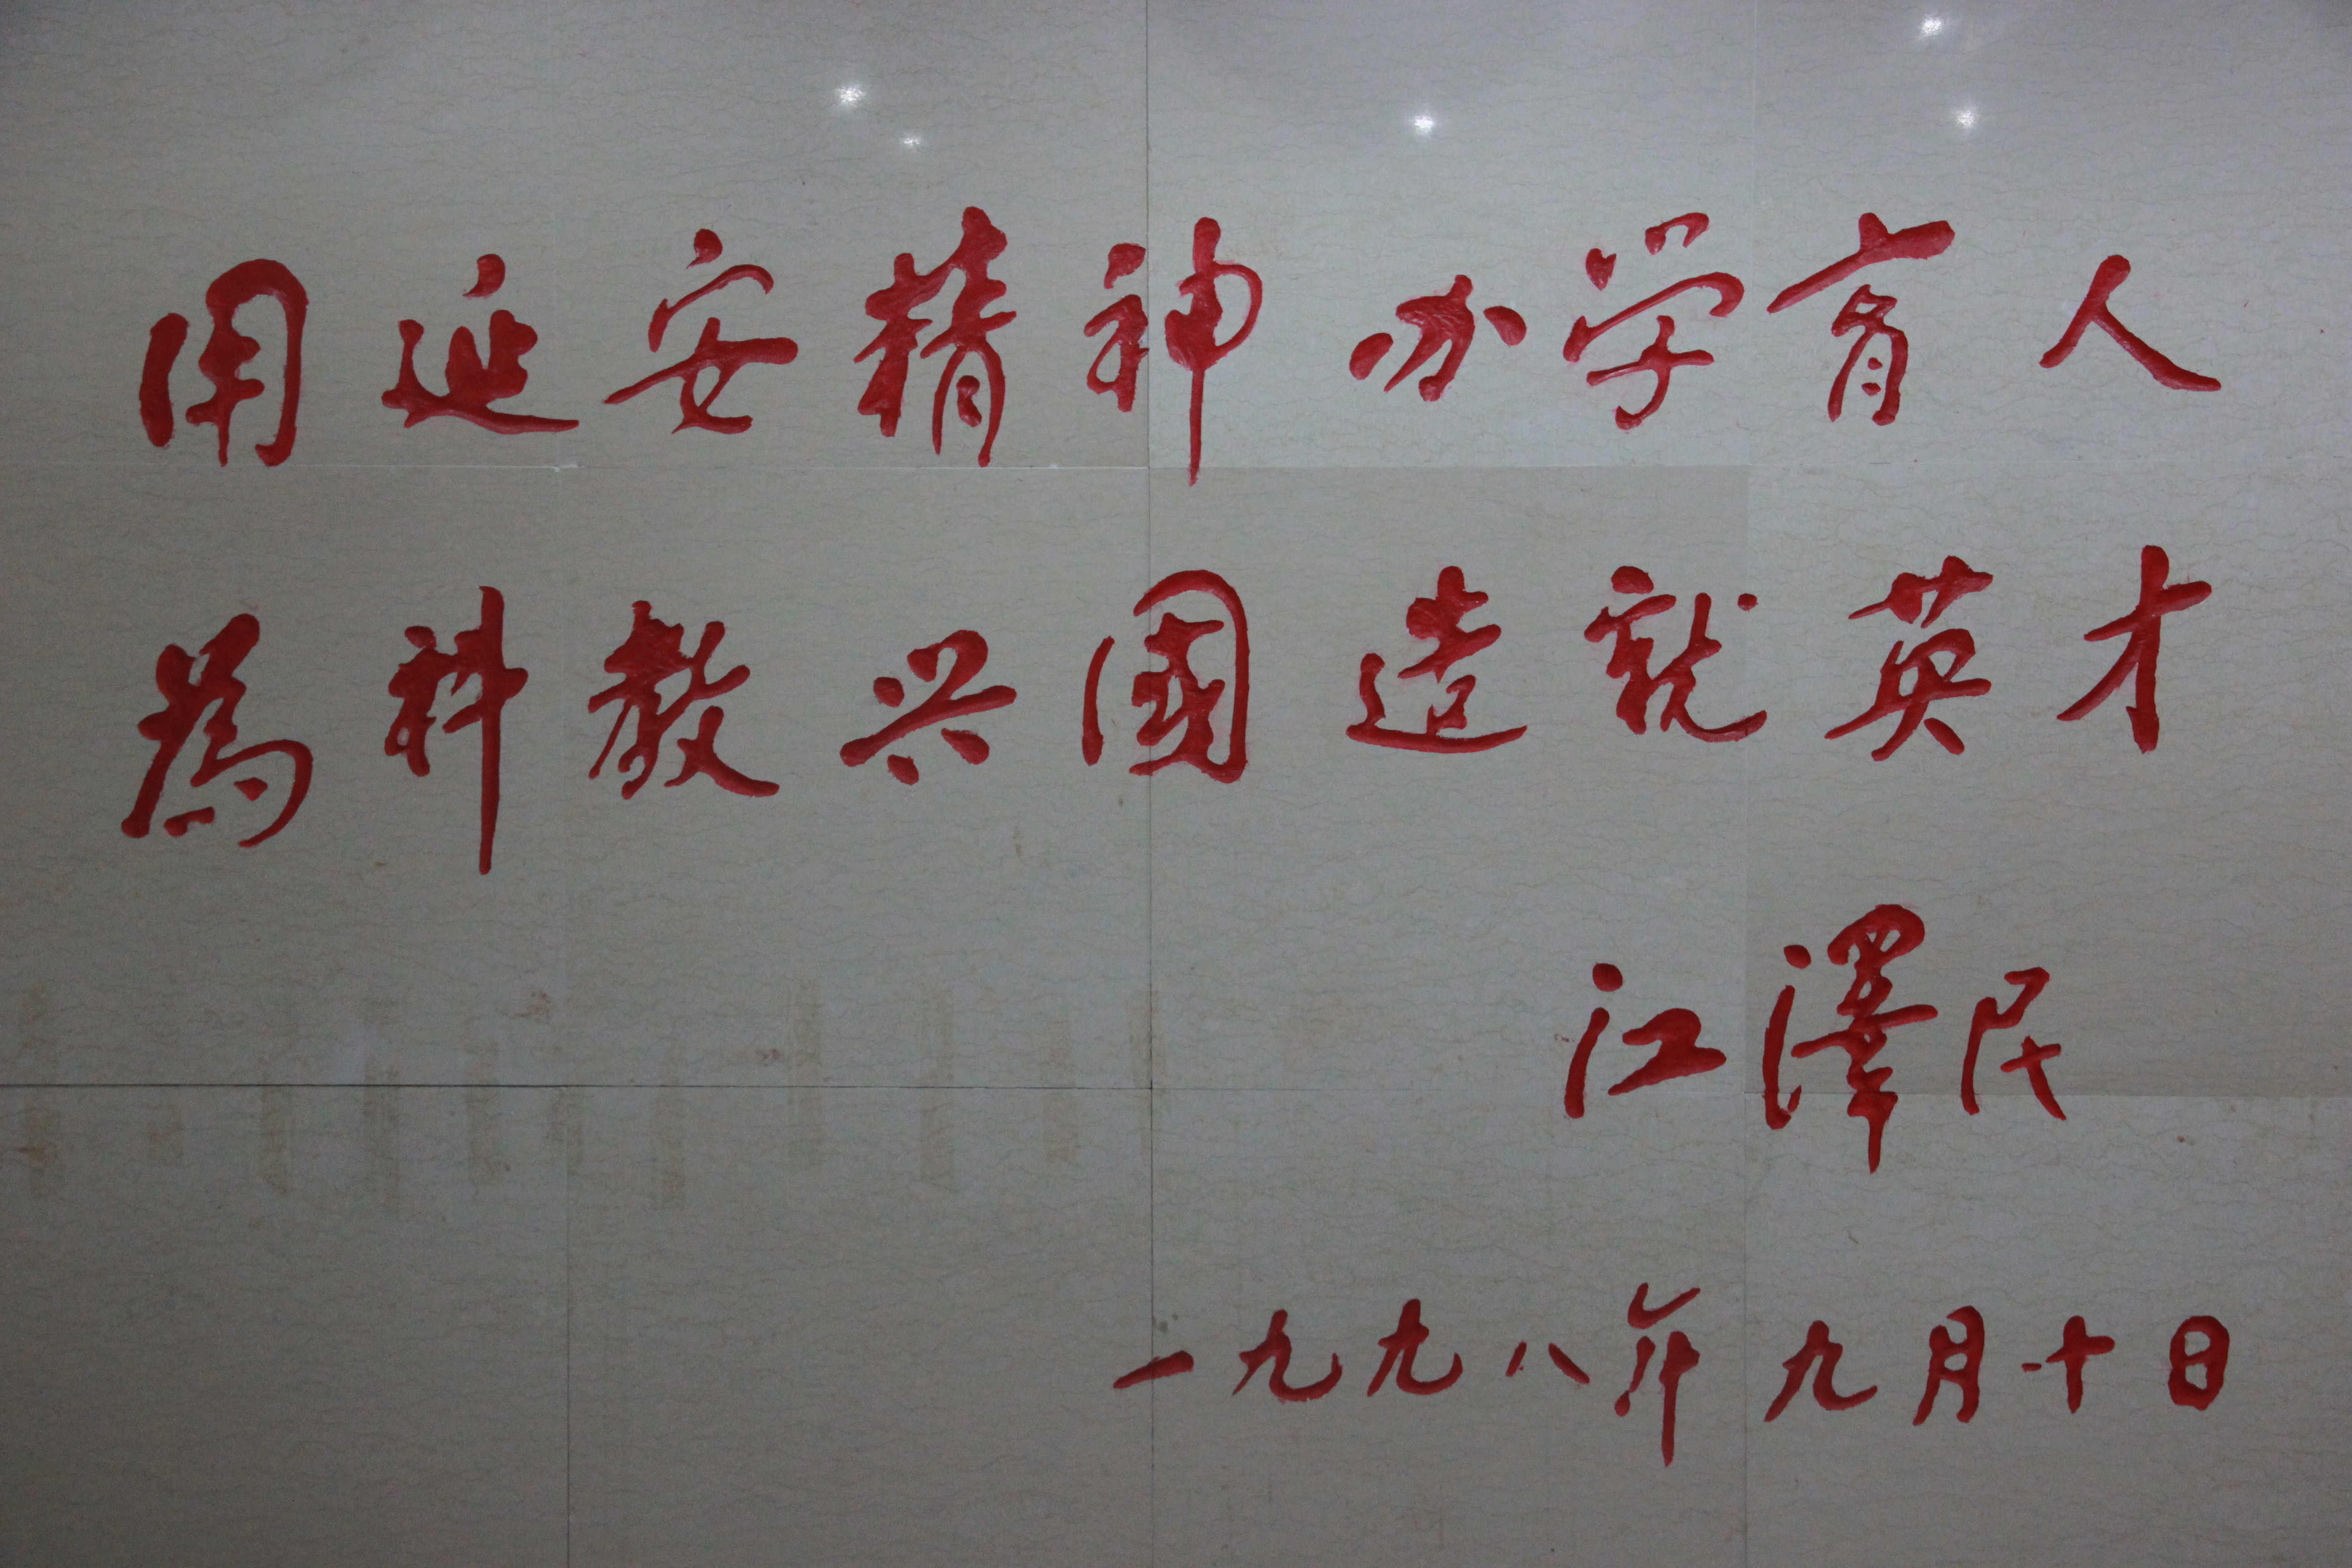 用延安精神办学育人
為科教兴國造就英才
江澤民
一九九八年九月十日